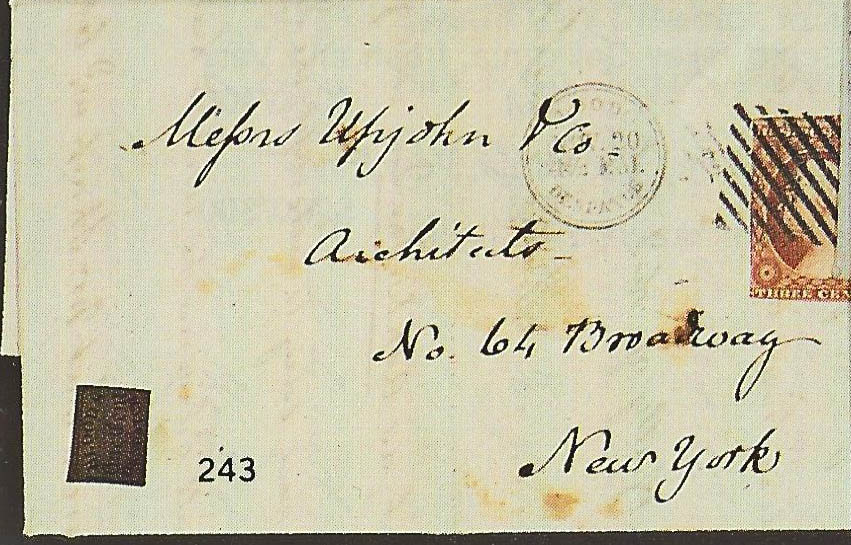 Messrs Upjohn & Co
Architects
No. 64 Broadway
New York
20
THREE CEN
243